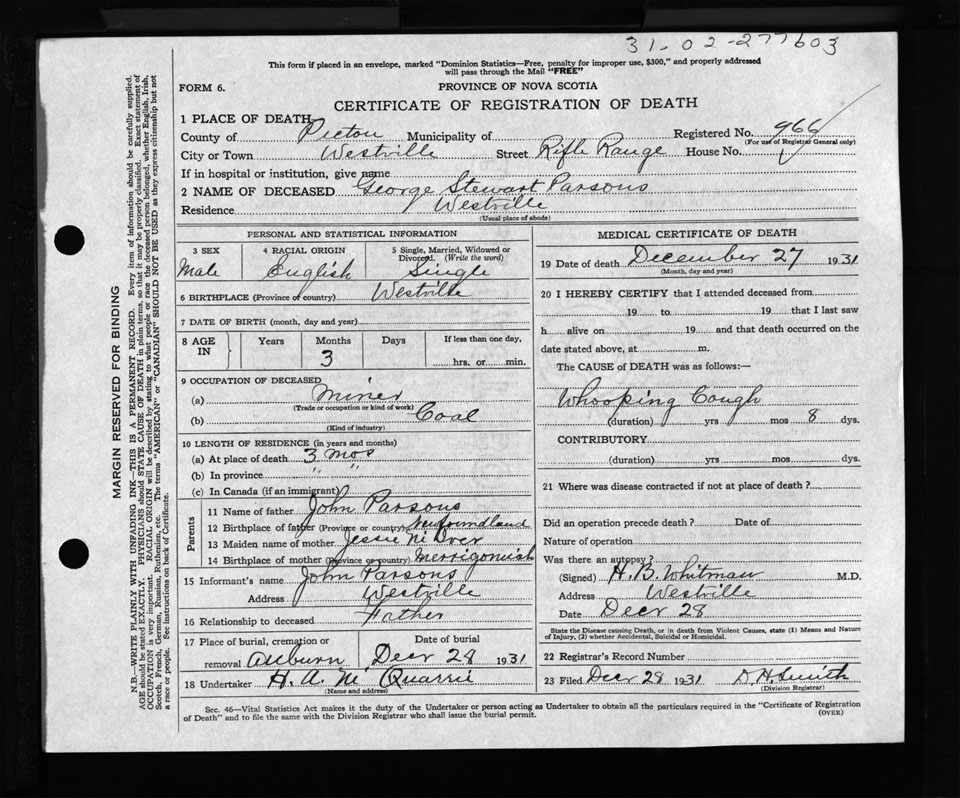 31-02-277603
This form if placed in an envelope, marked "Dominion Statistics—Free, penalty for improper use, $300," and properly addressed
will pass through the Mail "FREE"
FORM 6.
PROVINCE OF NOVA SCOTIA
CERTIFICATE OF REGISTRATION OF DEATH
1 PLACE OF DEATH
County of Pictou Municipality of Registered No. 966
(For use of Registrar General only)
City or Town Westville Street Rifle Range House No.
If in hospital or institution, give name
2 NAME OF DECEASED George Stewart Parsons
Residence Westville
(Usual place of abode)
PERSONAL AND STATISTICAL INFORMATION
3 SEX 4 RACIAL ORIGIN 5 Single, Married, Widowed or Divorced. (Write the word)
Male English Single
6 BIRTHPLACE (Province or country) Westville
7 DATE OF BIRTH (month, day and year)
8 AGE IN Years Months Days If less than one day,
3 hrs. or min.
9 OCCUPATION OF DECEASED
(a) Miner
(Trade or occupation or kind of work)
(b) Coal
(Kind of industry)
10 LENGTH OF RESIDENCE (in years and months)
(a) At place of death 3 mos
(b) In province " "
(c) In Canada (if an immigrant)
Parents
11 Name of father John Parsons
12 Birthplace of father (Province or country) Newfoundland
13 Maiden name of mother Jessie
14 Birthplace of mother (Province or country) Merrigomish
15 Informant's name John Parsons
Address Westville
16 Relationship to deceased Father
17 Place of burial, cremation or Date of burial
removal Auburn Decr 28 1931
18 Undertaker H. A. Mc Quarrie
(Name and address)
MEDICAL CERTIFICATE OF DEATH
19 Date of death December 27 1931
(Month, day and year)
20 I HEREBY CERTIFY that I attended deceased from
19 to 19 that I last saw
h alive on 19 and that death occurred on
date stated above, at m.
The CAUSE of DEATH was as follows:—
Whooping Cough
(duration) yrs mos 8 dys.
CONTRIBUTORY
(duration) yrs mos dys.
21 Where was disease contracted if not at place of death?
Did an operation precede death? Date of
Nature of operation
Was there an autopsy?
(Signed) H. B. Whitman M.D.
Address Westville
Date Decr 28
State the Disease causing Death, or in death from Violent Causes, state (1) Means and Nature
of Injury, (2) whether Accidental, Suicidal or Homicidal.
22 Registrar's Record Number
23 Filed Decr 28 1931 D. H. Smith
(Division Registrar)
Sec. 46—Vital Statistics Act makes it the duty of the Undertaker or person acting as Undertaker to obtain all the particulars required in the "Certificate of Registration
of Death" and to file the same with the Division Registrar who shall issue the burial permit.
(OVER)
MARGIN RESERVED FOR BINDING
N.B.—WRITE PLAINLY WITH UNFADING INK—THIS IS A PERMANENT RECORD. Every item of information should be carefully supplied.
AGE should be stated EXACTLY. PHYSICIANS should STATE CAUSE OF DEATH in plain terms, so that it may be properly classified. Exact statement of
OCCUPATION is very important. RACIAL ORIGIN will be described by stating to what people or race the deceased person belonged, whether English, Irish,
Scotch, French, German, Russian, Ruthenian, etc. The terms "AMERICAN" or "CANADIAN" SHOULD NOT BE USED as they express citizenship but not
a race or people. See instructions on back of Certificate.